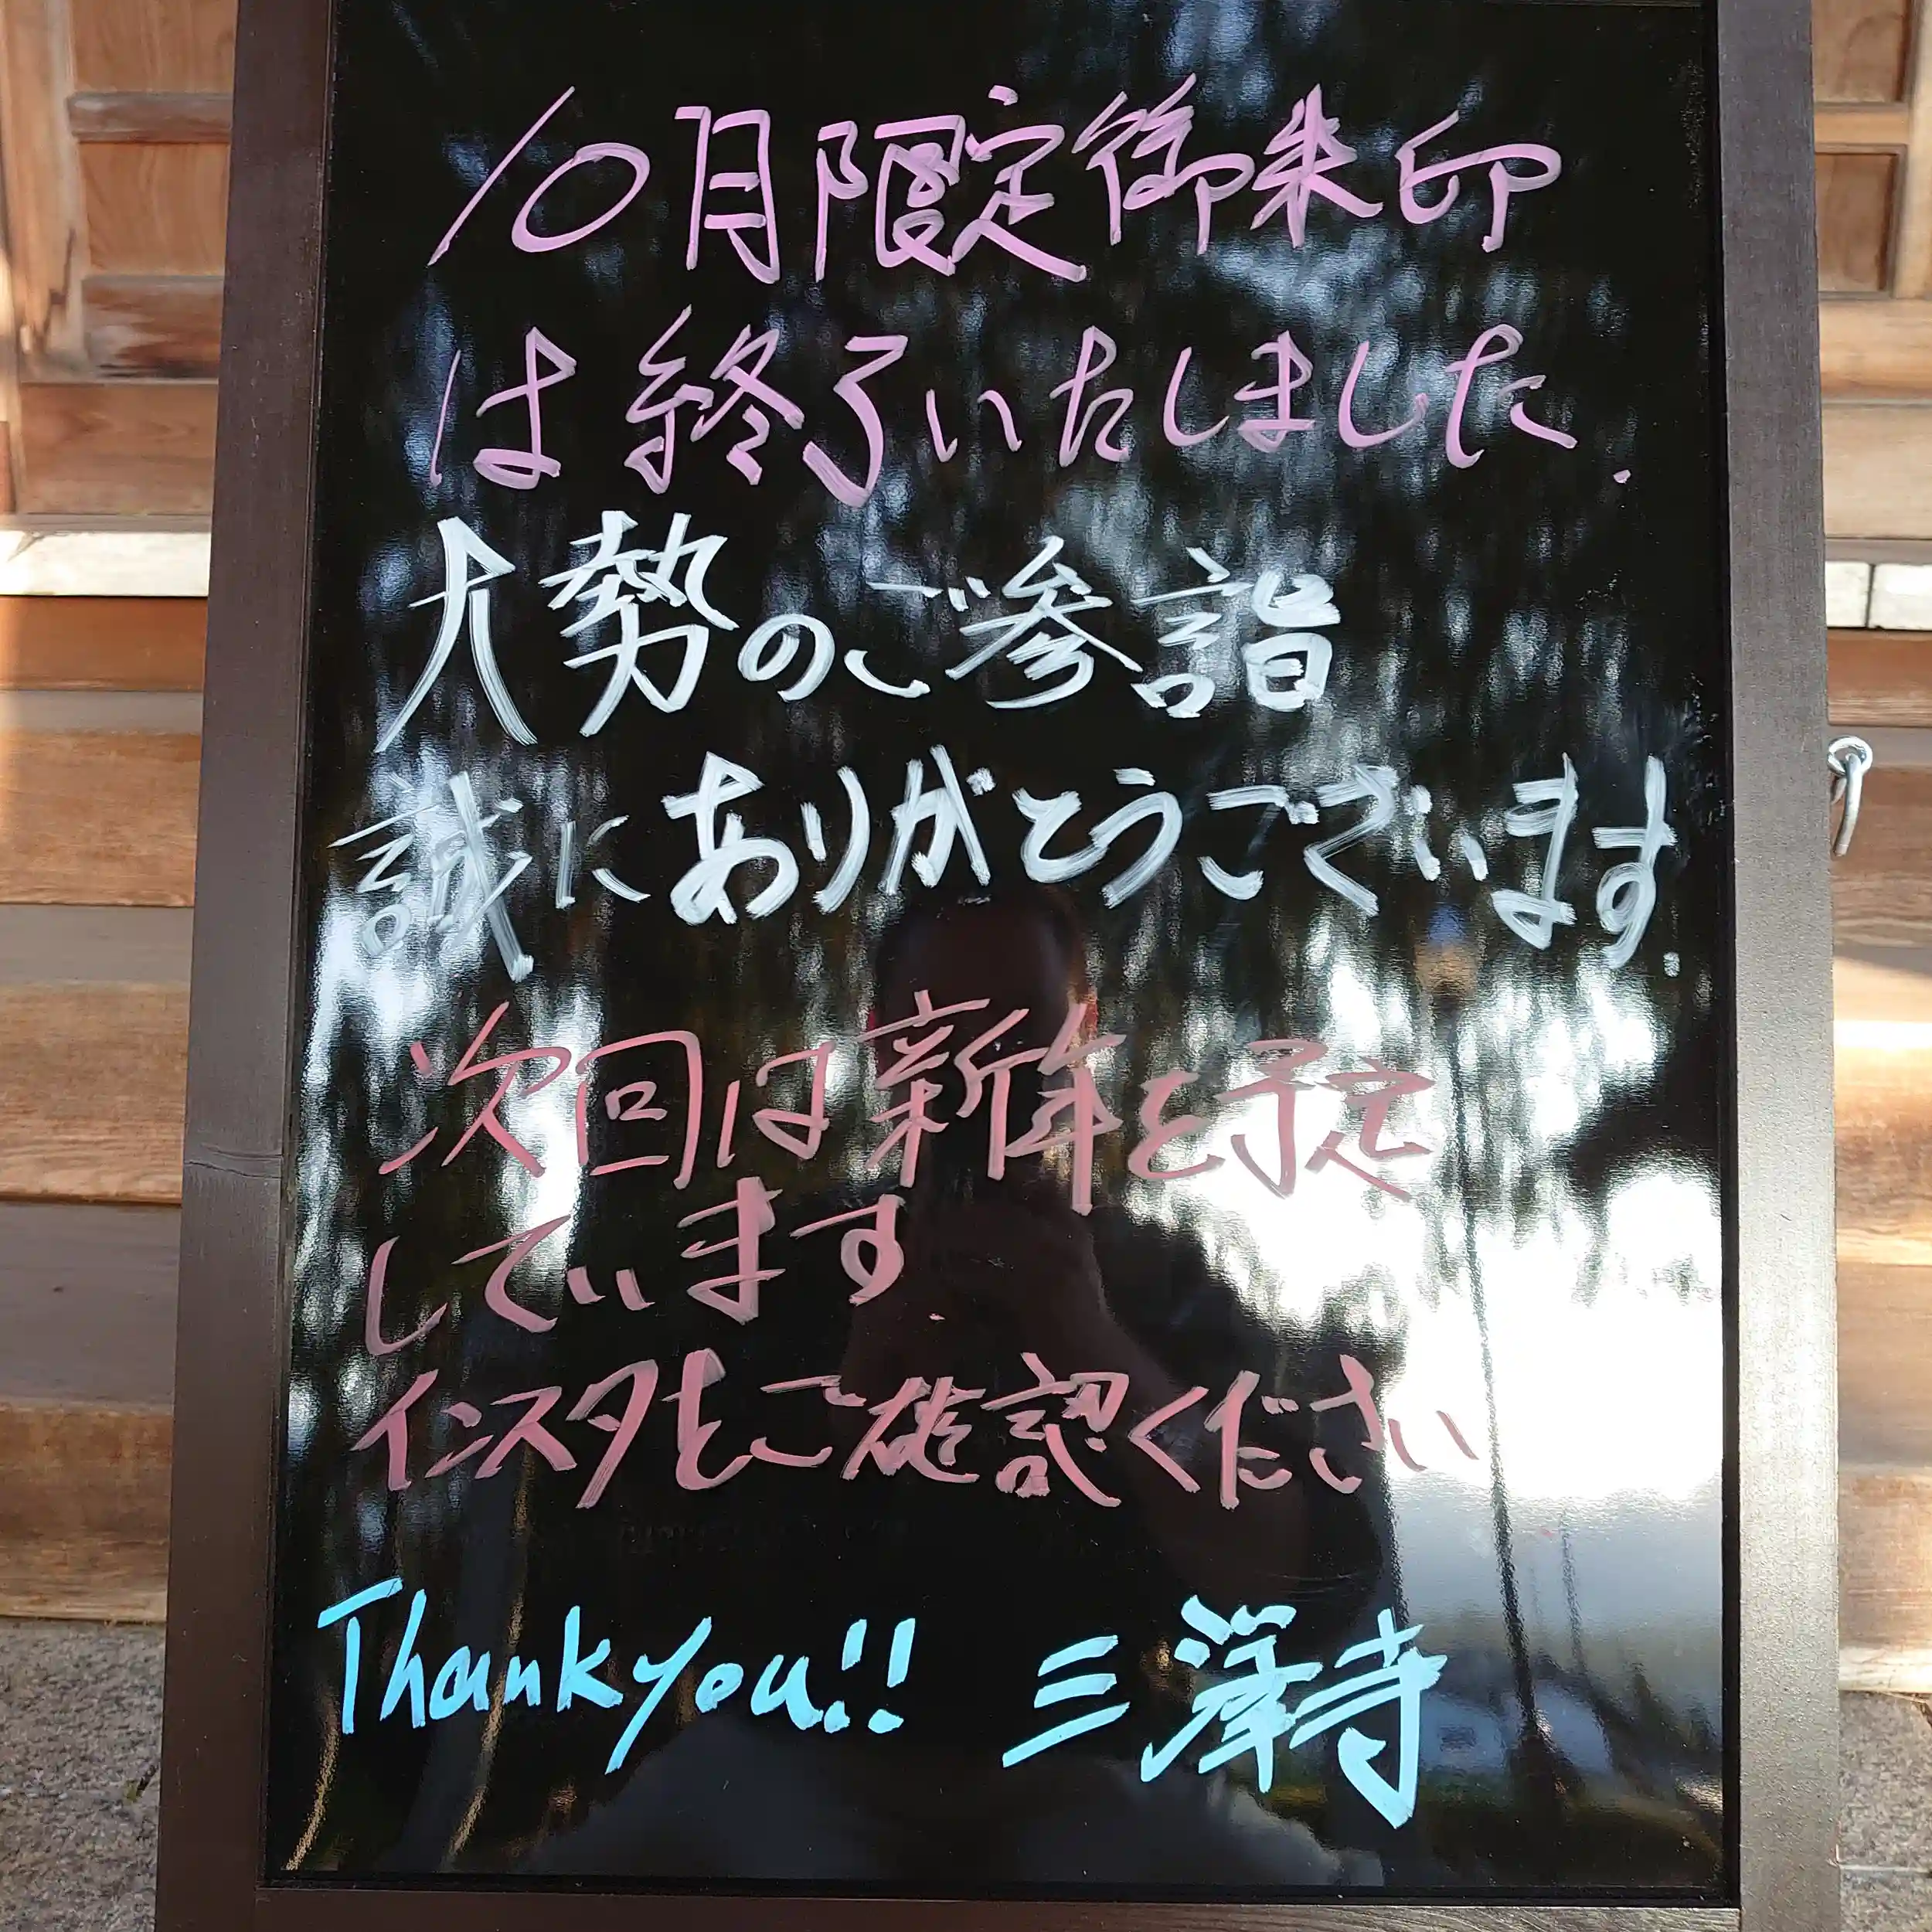 10月限定御朱印
は終了いたしました.
大勢のご参詣
誠にありがとうございます.
次回は新年を予定
しています.
インスタをご確認ください
Thank you!! 三澤寺